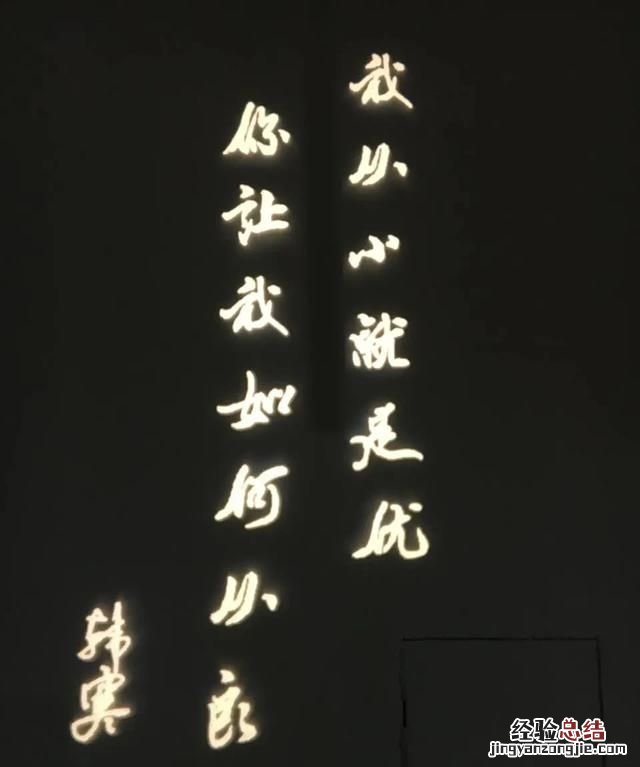 我从小就是优
你让我如何从良
韩寒
经验总结
jingyanzongjie.com